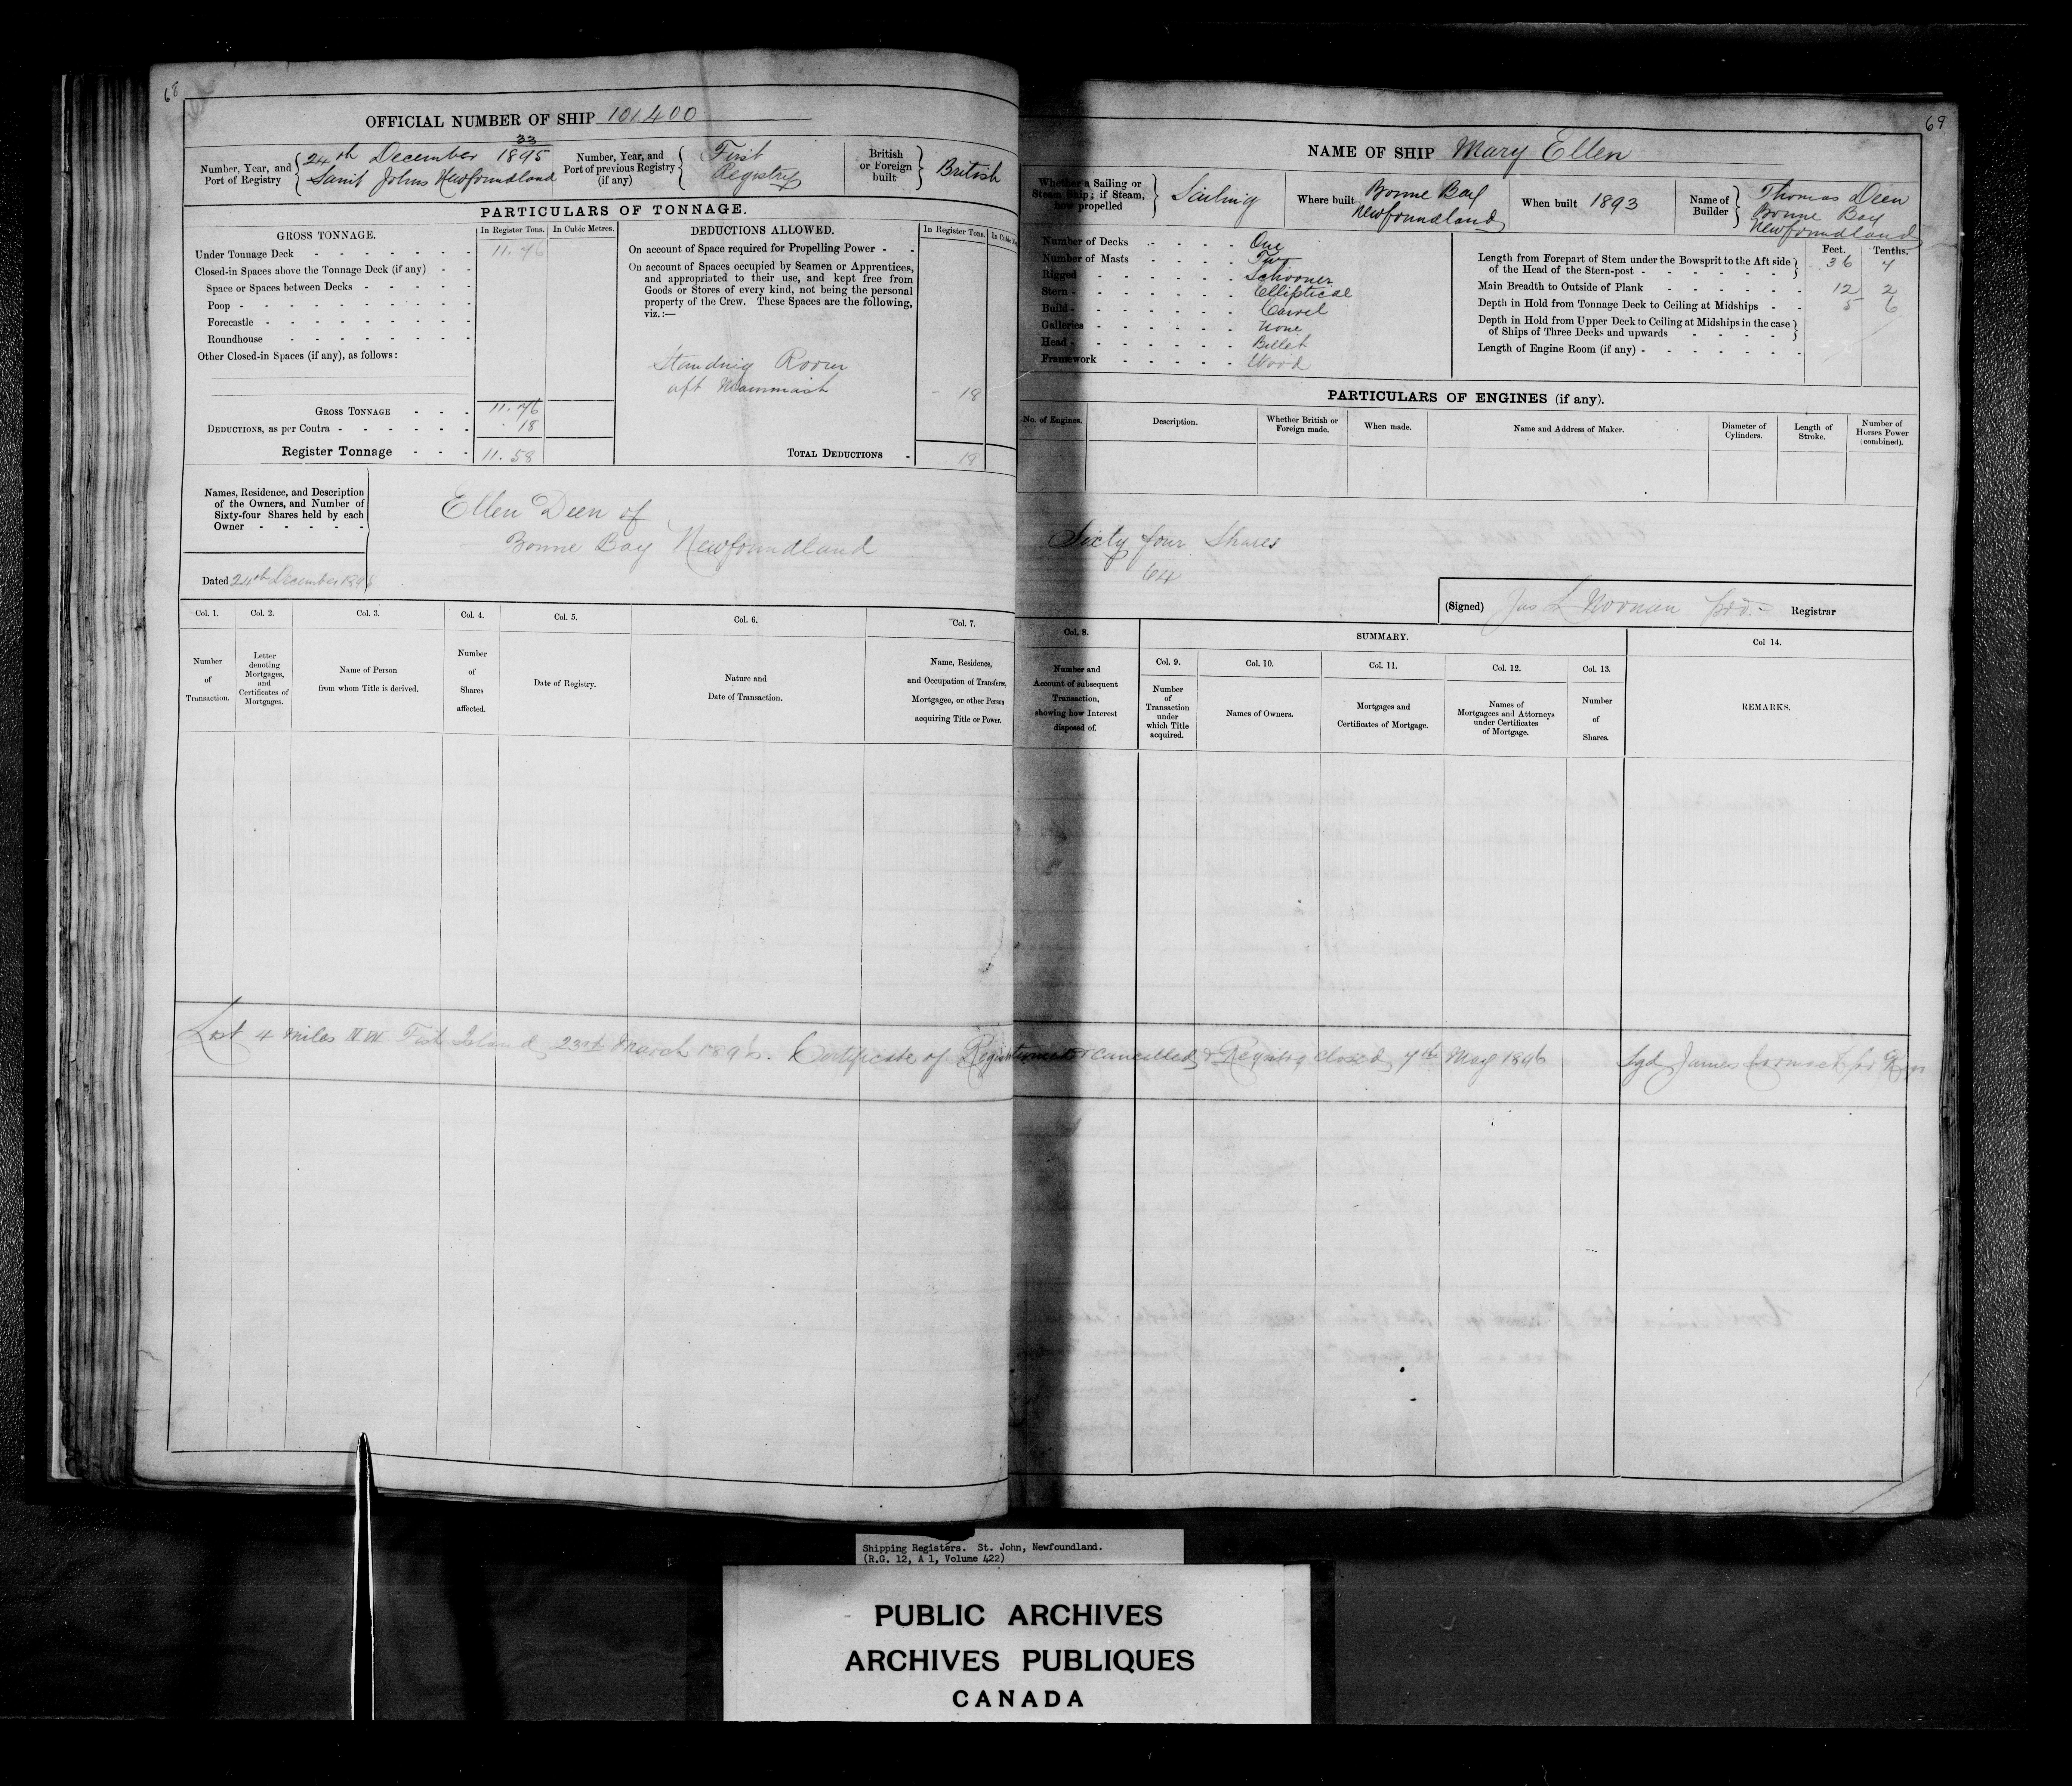 68
OFFICIAL NUMBER OF SHIP 101400
Number, Year, and Port of Registry { 24th December 33/1895
Saint Johns Newfoundland
Number, Year, and Port of previous Registry (if any) { First Registry
British or Foreign built } British
PARTICULARS OF TONNAGE.
GROSS TONNAGE.
In Register Tons.
In Cubic Metres.
Under Tonnage Deck 11.76
Closed-in Spaces above the Tonnage Deck (if any)
Space or Spaces between Decks
Poop
Forecastle
Roundhouse
Other Closed-in Spaces (if any), as follows:
GROSS TONNAGE 11.76
DEDUCTIONS, as per Contra .18
Register Tonnage 11.58
DEDUCTIONS ALLOWED.
In Register Tons.
On account of Space required for Propelling Power
On account of Spaces occupied by Seamen or Apprentices,
and appropriated to their use, and kept free from
Goods or Stores of every kind, not being the personal
property of the Crew. These Spaces are the following,
viz.:—
Standing Room
aft Mainmast 18
TOTAL DEDUCTIONS 18
Names, Residence, and Description
of the Owners, and Number of
Sixty-four Shares held by each
Owner
Ellen Deen of
Bonne Bay Newfoundland
Dated 24th December 1895
Col. 1.
Number of Transaction.
Col. 2.
Letter denoting Mortgages, and Certificates of Mortgages.
Col. 3.
Name of Person from whom Title is derived.
Col. 4.
Number of Shares affected.
Col. 5.
Date of Registry.
Col. 6.
Nature and Date of Transaction.
Col. 7.
Name, Residence, and Occupation of Transferee, Mortgagee, or other Person acquiring Title or Power.
69
NAME OF SHIP Mary Ellen
Whether a Sailing or Steam Ship; if Steam, how propelled } Sailing
Where built Bonne Bay Newfoundland
When built 1893
Name of Builder } Thomas Deen
Bonne Bay
Newfoundland
Number of Decks One
Number of Masts Two
Rigged Schooner
Stern Elliptical
Build Carvel
Galleries None
Head Billet
Framework Wood
Feet. Tenths.
Length from Forepart of Stem under the Bowsprit to the Aft side of the Head of the Stern-post 36 4
Main Breadth to Outside of Plank 12 2
Depth in Hold from Tonnage Deck to Ceiling at Midships 5 6
Depth in Hold from Upper Deck to Ceiling at Midships in the case of Ships of Three Decks and upwards
Length of Engine Room (if any)
PARTICULARS OF ENGINES (if any).
No. of Engines.
Description.
Whether British or Foreign made.
When made.
Name and Address of Maker.
Diameter of Cylinders.
Length of Stroke.
Number of Horses Power (combined).
Sixty four Shares
64
(Signed) Jas L Noonan Registrar
Col. 8.
Number and Account of subsequent Transaction, showing how Interest disposed of.
SUMMARY.
Col. 9.
Number of Transaction under which Title acquired.
Col. 10.
Names of Owners.
Col. 11.
Mortgages and Certificates of Mortgage.
Col. 12.
Names of Mortgagees and Attorneys under Certificates of Mortgage.
Col. 13.
Number of Shares.
Col 14.
REMARKS.
Lost 4 miles Island, 23rd March 1896. Certificate of cancelled & Registry closed, 7th May 1896 Sgd James Cormack
Shipping Registers. St. John, Newfoundland.
(R.G. 12, A 1, Volume 422)
PUBLIC ARCHIVES
ARCHIVES PUBLIQUES
CANADA